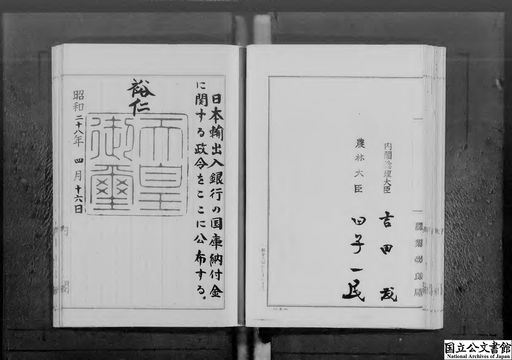 内閣総理大臣 吉田茂
農林大臣 田子一民
日本輸出入銀行の国庫納付金
に関する政令をここに公布する。
裕仁
天皇
御璽
昭和二十八年 四月十六日
国立公文書館
National Archives of Japan